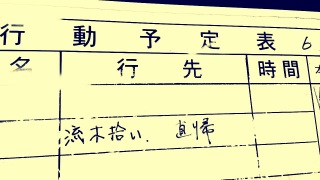 行動予定表 6
名 行先 時間
流木拾い、直帰